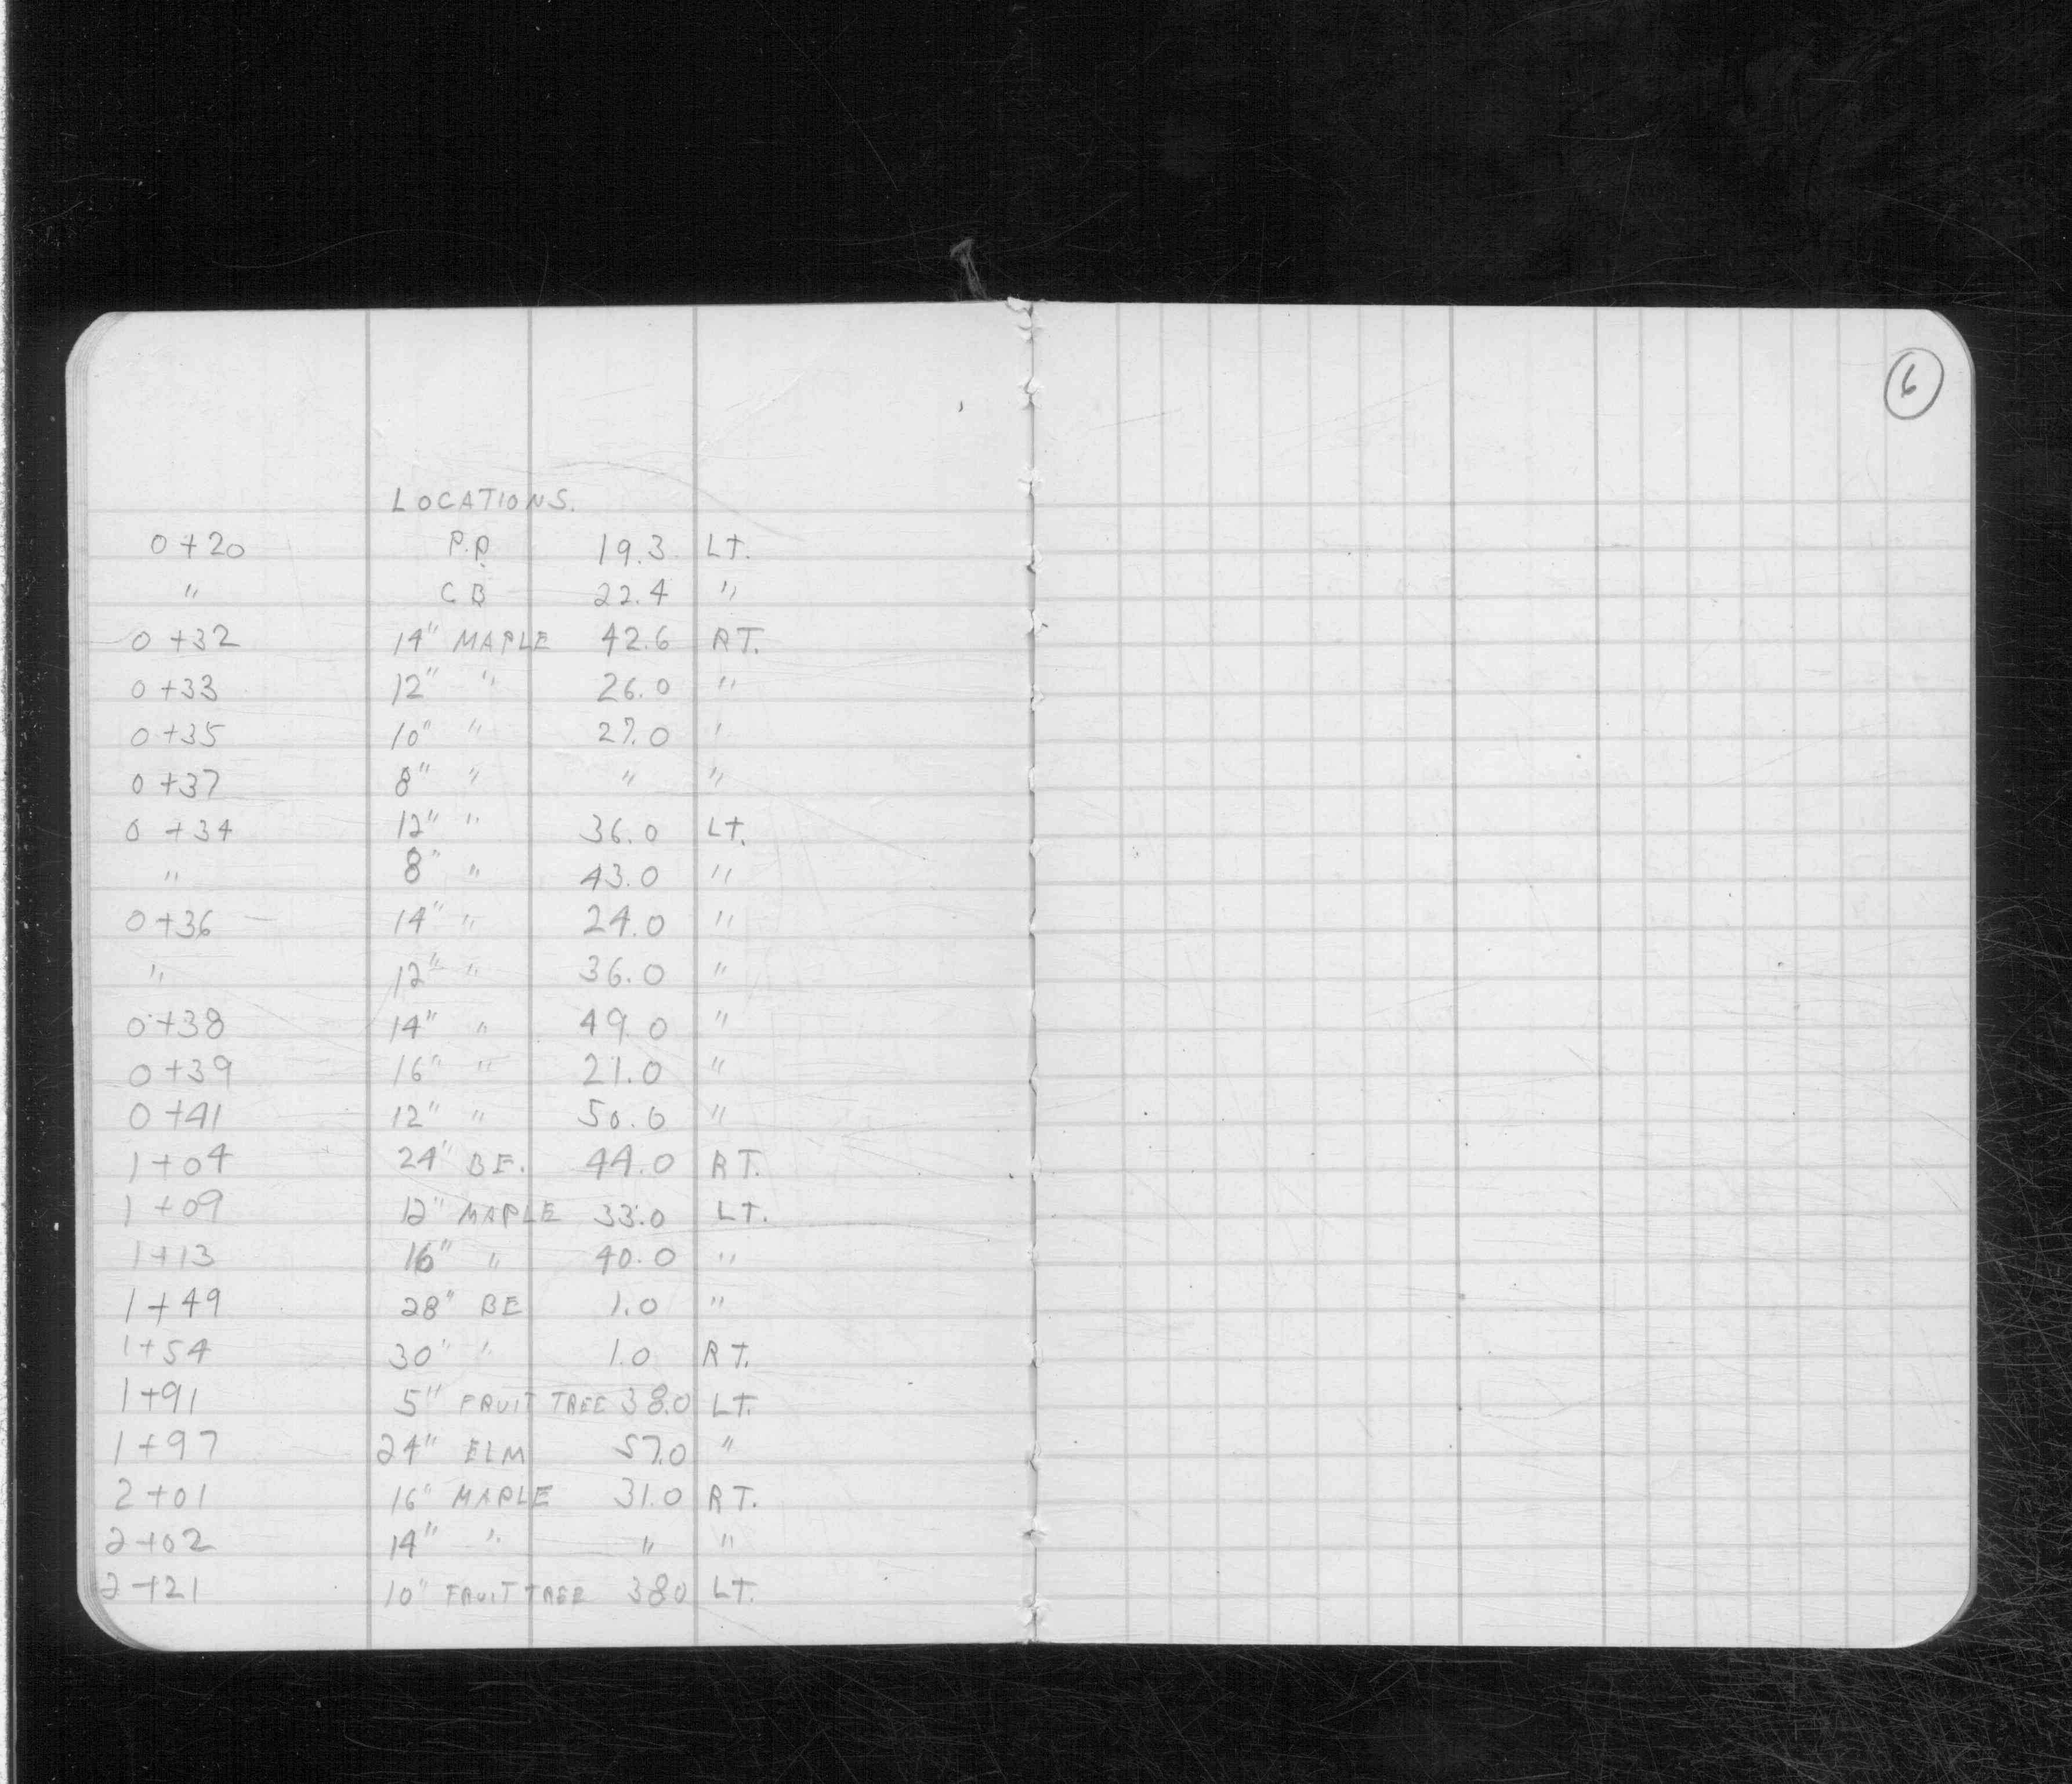 6
LOCATIONS.
0+20 P.P. 19.3 LT.
" CB 22.4 "
0+32 14" MAPLE 42.6 RT.
0+33 12" " 26.0 "
0+35 10" " 27.0 "
0+37 8" " " "
0+34 12" " 36.0 LT.
" 8" " 43.0 "
0+36 14" " 24.0 "
" 12" " 36.0 "
0+38 14" " 49.0 "
0+39 16" " 21.0 "
0+41 12" " 50.0 "
1+04 24" BE. 44.0 RT.
1+09 12" MAPLE 33.0 LT.
1+13 16" " 40.0 "
1+49 28" BE 1.0 "
1+54 30" " 1.0 RT.
1+91 5" FRUIT TREE 38.0 LT.
1+97 24" ELM 57.0 "
2+01 16" MAPLE 31.0 RT.
2+02 14" " " "
2+21 10" FRUIT TREE 38.0 LT.